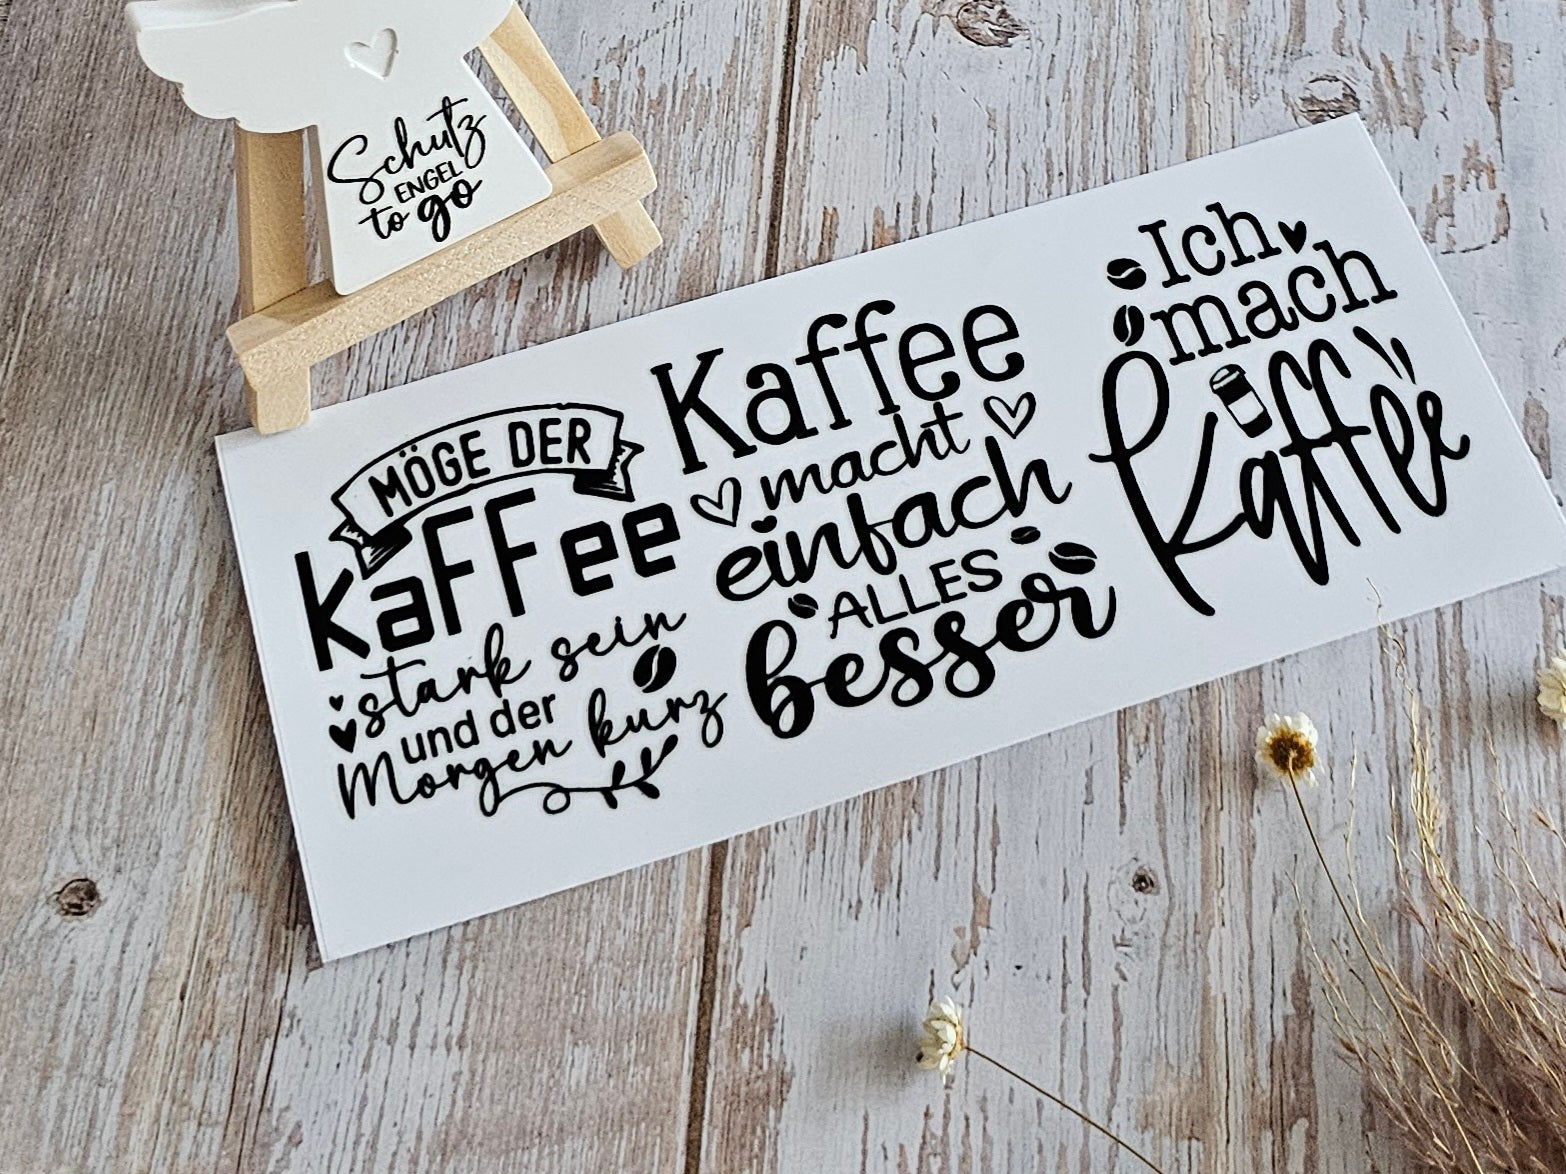 Schutz
ENGEL
to go
MÖGE DER
Kaffee
stark sein
und der
Morgen kurz
Kaffee
macht
einfach
ALLES
besser
Ich
mach
Kaffee